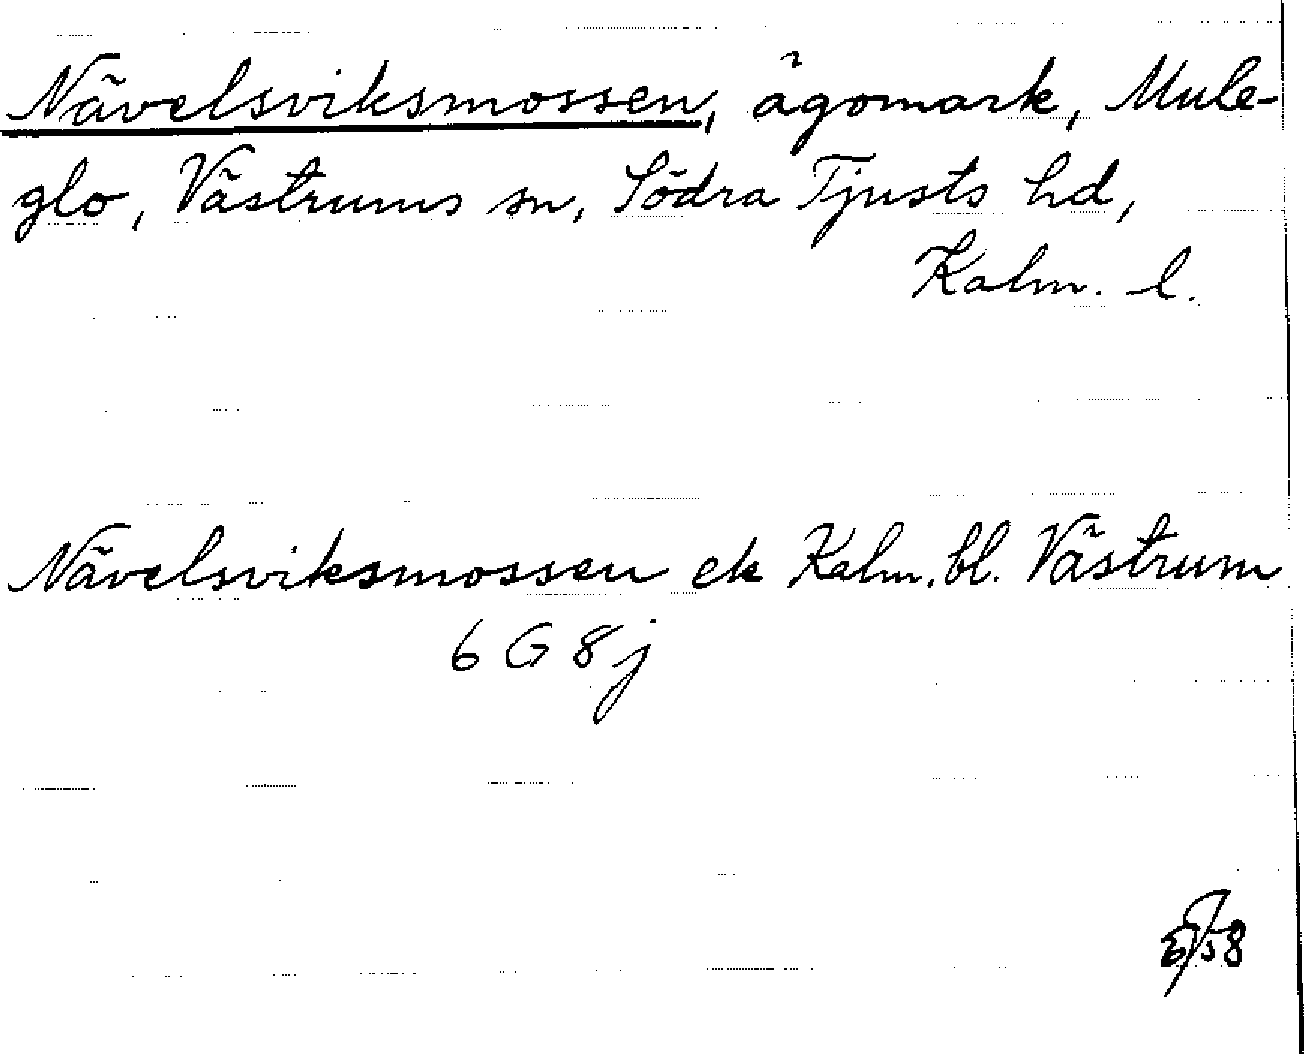 Nävelsviksmossen, ägomark, Mule-
glo, Västrums sn, Södra Tjusts hd,
Kalm. l.
Nävelsviksmossen ek Kalm. bl. Västrum
6 G 8 j